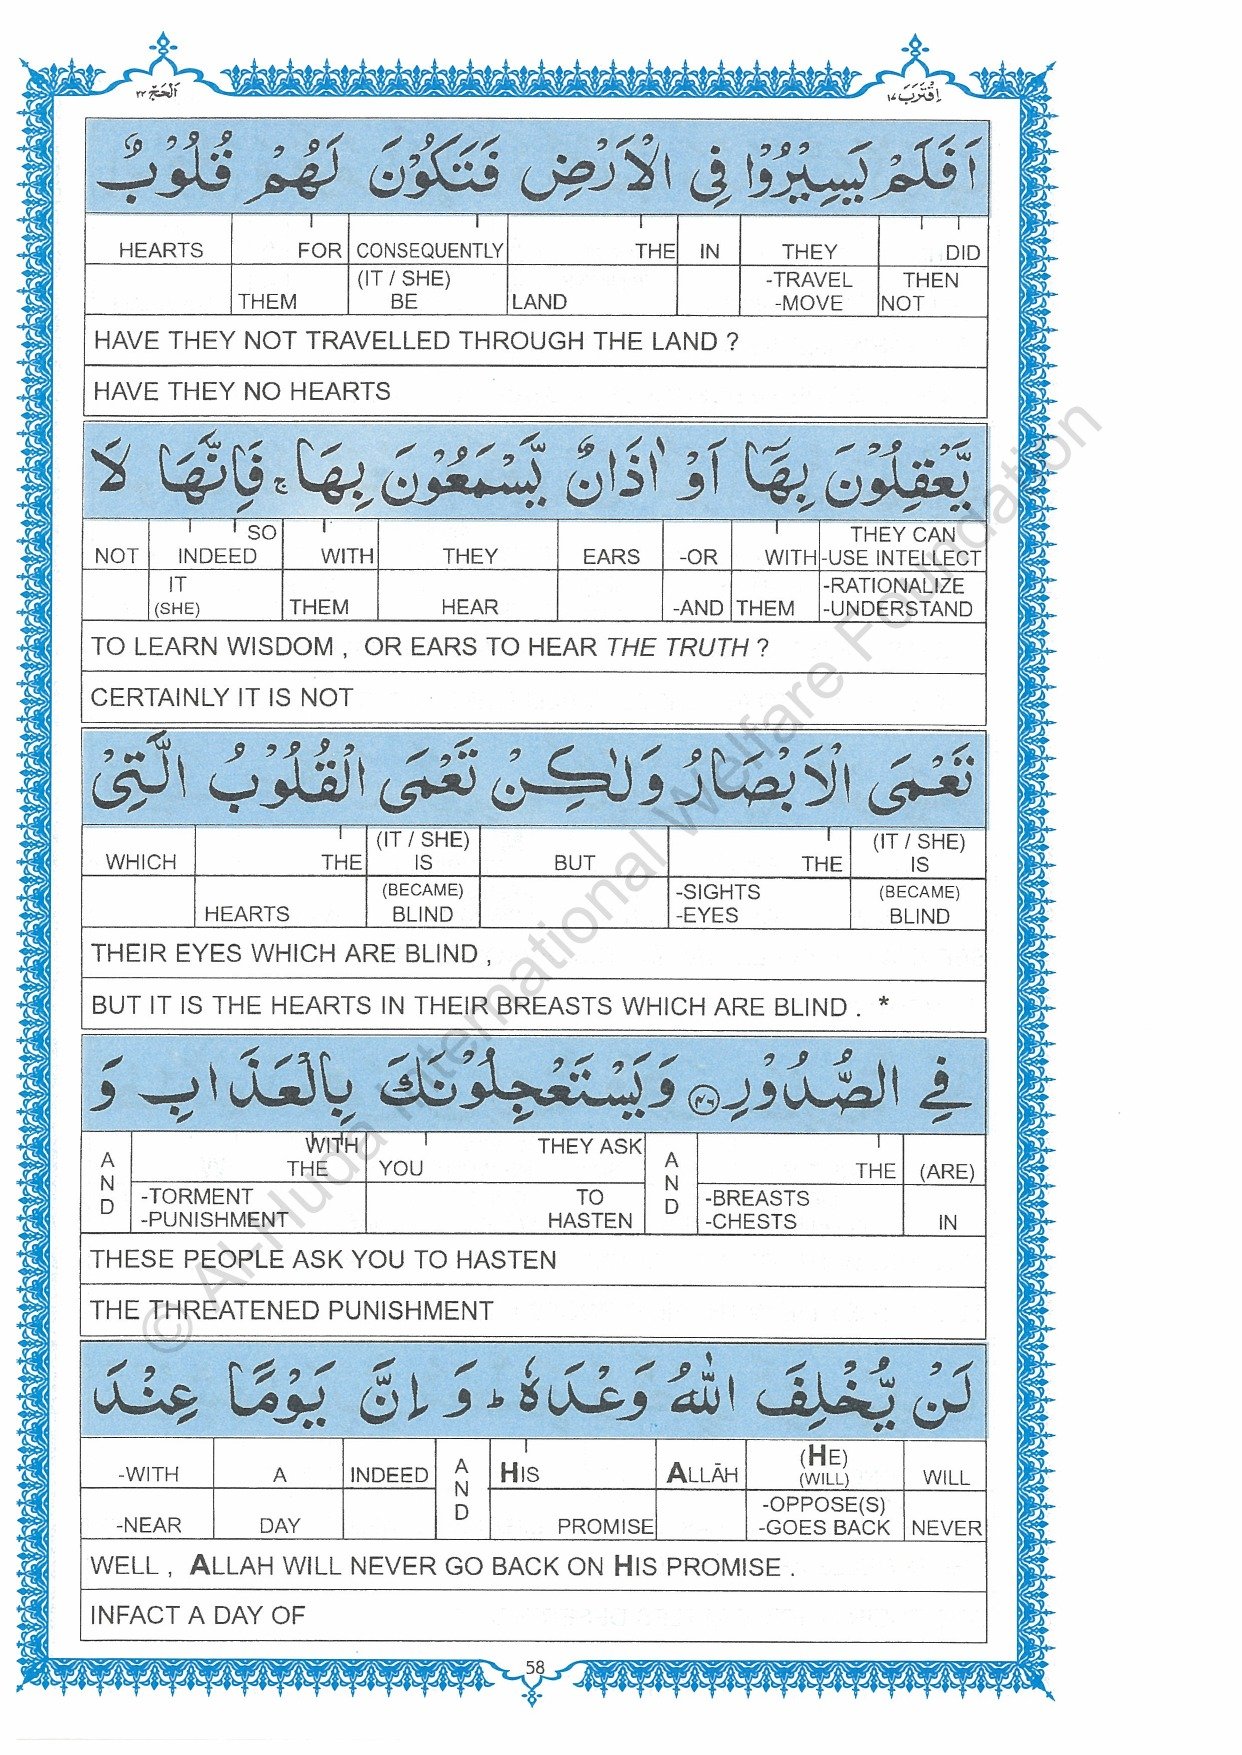 اَلْحَجّ ٢٢
اِقْتَرَبَ ١٧
اَفَلَمْ يَسِيْرُوْا فِى الْاَرْضِ فَتَكُوْنَ لَهُمْ قُلُوْبٌ
HEARTS FOR CONSEQUENTLY THE IN THEY DID
THEM (IT / SHE) BE LAND -TRAVEL -MOVE THEN NOT
HAVE THEY NOT TRAVELLED THROUGH THE LAND ?
HAVE THEY NO HEARTS
يَّعْقِلُوْنَ بِهَآ اَوْ اٰذَانٌ يَّسْمَعُوْنَ بِهَا ۚ فَاِنَّهَا لَا
NOT SO INDEED WITH THEY EARS -OR WITH THEY CAN -USE INTELLECT
IT (SHE) THEM HEAR -AND THEM -RATIONALIZE -UNDERSTAND
TO LEARN WISDOM , OR EARS TO HEAR THE TRUTH ?
CERTAINLY IT IS NOT
تَعْمَى الْاَبْصَارُ وَلٰكِنْ تَعْمَى الْقُلُوْبُ الَّتِىْ
WHICH THE (IT / SHE) IS BUT THE (IT / SHE) IS
HEARTS (BECAME) BLIND -SIGHTS -EYES (BECAME) BLIND
THEIR EYES WHICH ARE BLIND ,
BUT IT IS THE HEARTS IN THEIR BREASTS WHICH ARE BLIND . *
فِى الصُّدُوْرِ ٤٦ وَيَسْتَعْجِلُوْنَكَ بِالْعَذَابِ وَ
AND WITH THE YOU THEY ASK AND THE (ARE)
-TORMENT -PUNISHMENT TO HASTEN -BREASTS -CHESTS IN
THESE PEOPLE ASK YOU TO HASTEN
THE THREATENED PUNISHMENT
لَنْ يُّخْلِفَ اللّٰهُ وَعْدَهٗ ؕ وَ اِنَّ يَوْمًا عِنْدَ
-WITH A INDEED AND HIS ALLĀH (HE) (WILL) WILL
-NEAR DAY PROMISE -OPPOSE(S) -GOES BACK NEVER
WELL , ALLAH WILL NEVER GO BACK ON HIS PROMISE .
INFACT A DAY OF
58
© Al-Huda International Welfare Foundation